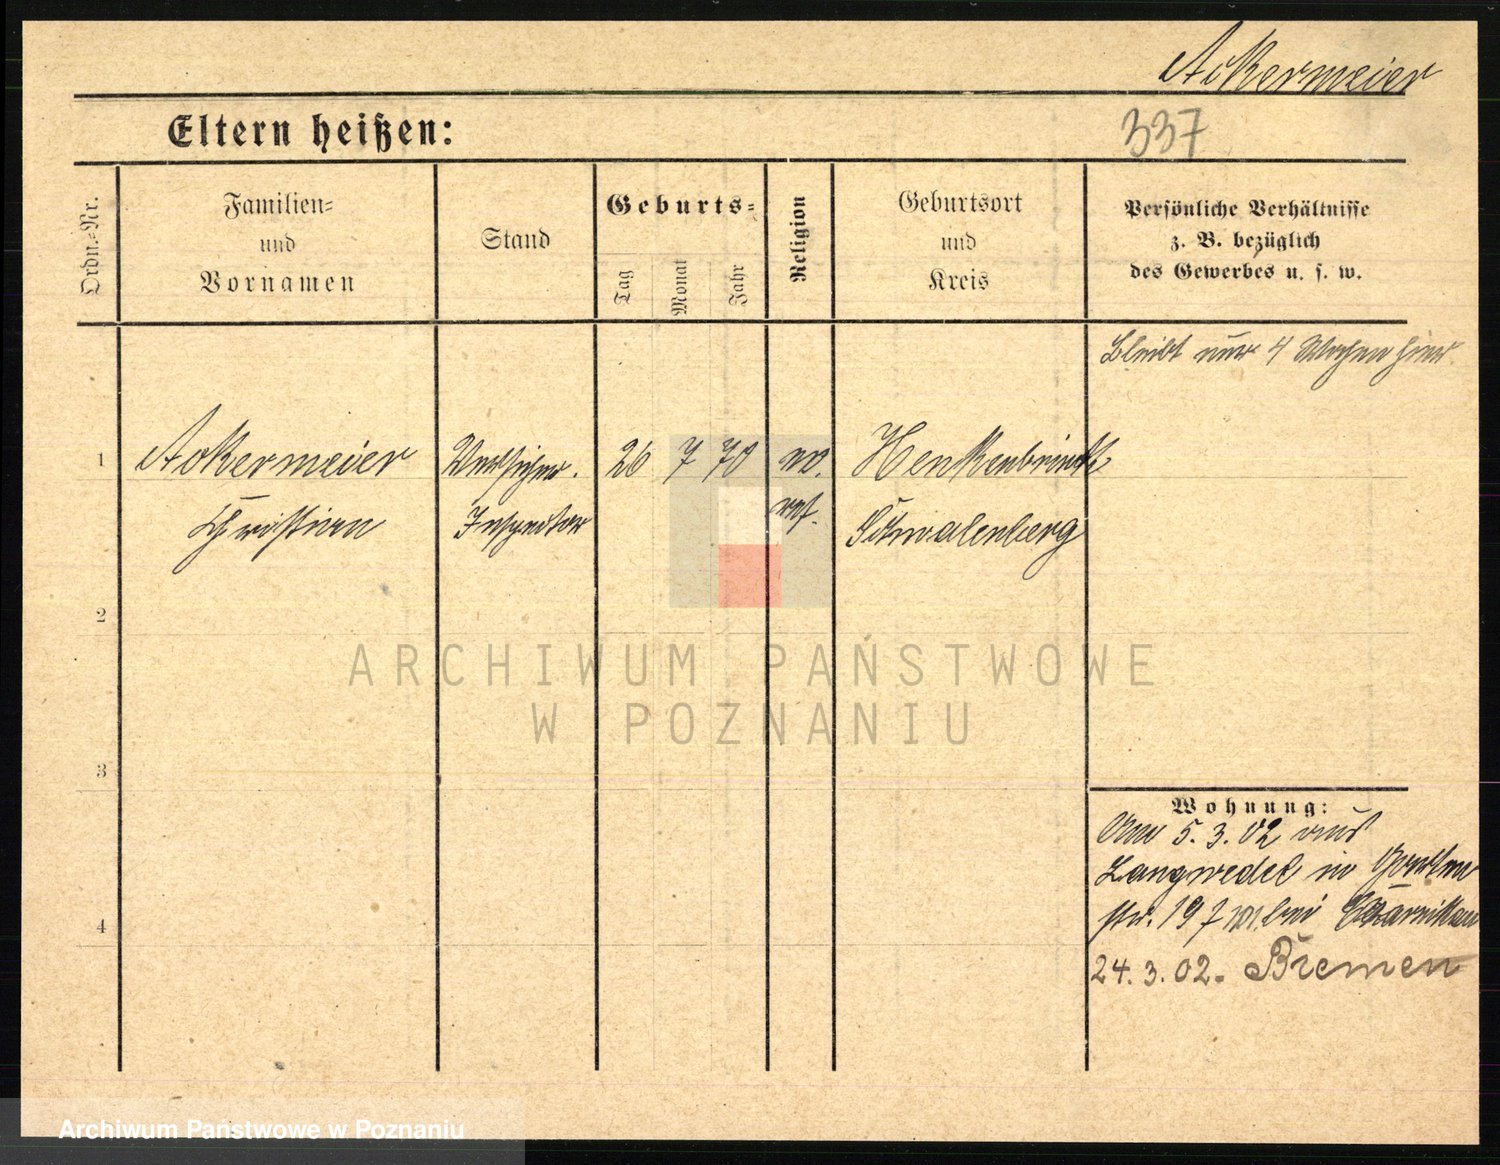 Ackermeier
Eltern heißen:
337
Ordn.-Nr.
Familien-
und
Vornamen
Stand
Geburts-
Tag
Monat
Jahr
Religion
Geburtsort
und
Kreis
Persönliche Verhältnisse
z. B. bezüglich
des Gewerbes u. s. w.
Bleibt nur 4 Wochen hier.
1
Ackermeier
Christian
Versicher.
Inspektor
26 7 70
ev.
ref.
Henkenbrink
Schwalenberg
2
3
4
Wohnung:
Am 5.3.02 aus
Langwedel in
str. 19 bei Czarnikau
24.3.02. Bremen
ARCHIWUM PAŃSTWOWE
W POZNANIU
Archiwum Państwowe w Poznaniu